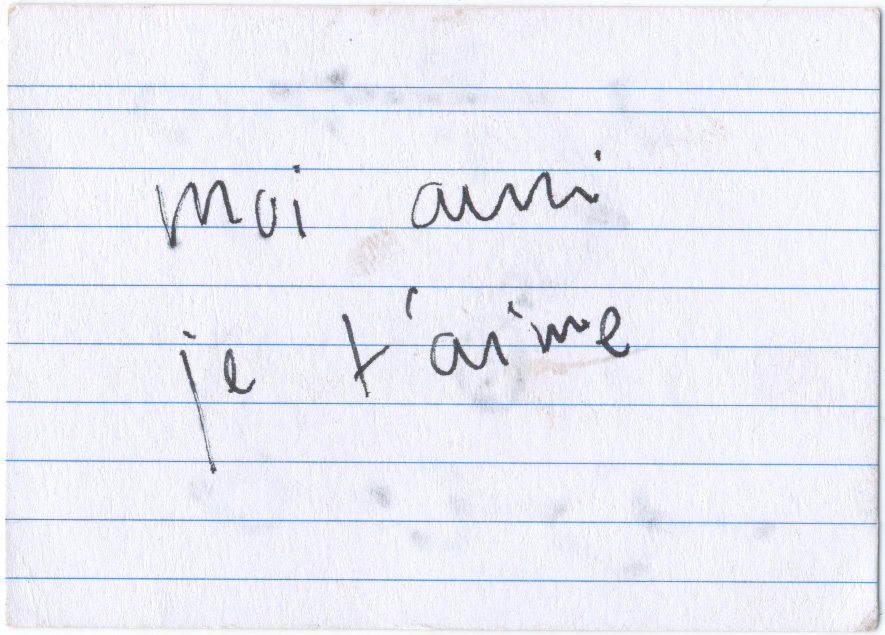 moi aussi
je t'aime